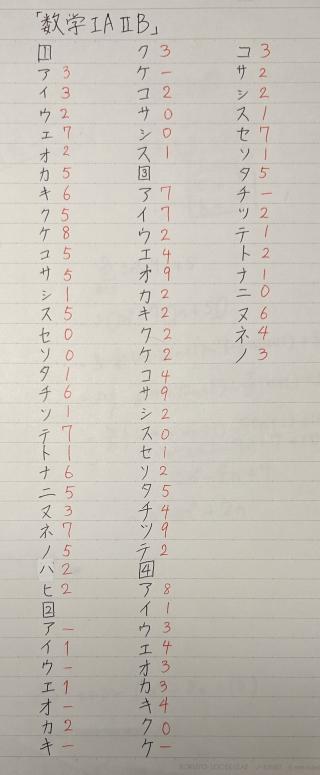 「数学ⅠAⅡB」
1
ア 3
イ 3
ウ 2
エ 7
オ 2
カ 5
キ 6
ク 5
ケ 8
コ 5
サ 5
シ 1
ス 5
セ 0
ソ 0
タ 1
チ 6
ツ 1
テ 7
ト 1
ナ 6
ニ 5
ヌ 3
ネ 7
ノ 5
ハ 2
ヒ 2
2
ア −
イ 1
ウ −
エ 1
オ −
カ 2
キ −
ク 3
ケ −
コ 2
サ 0
シ 0
ス 1
3
ア 7
イ 7
ウ 2
エ 4
オ 9
カ 2
キ 2
ク 2
ケ 2
コ 4
サ 9
シ 2
ス 0
セ 1
ソ 2
タ 5
チ 4
ツ 9
テ 2
4
ア 8
イ 1
ウ 3
エ 4
オ 3
カ 3
キ 4
ク 0
ケ −
コ 3
サ 2
シ 2
ス 1
セ 7
ソ 1
タ 5
チ −
ツ 2
テ 1
ト 2
ナ 1
ニ 0
ヌ 6
ネ 4
ノ 3